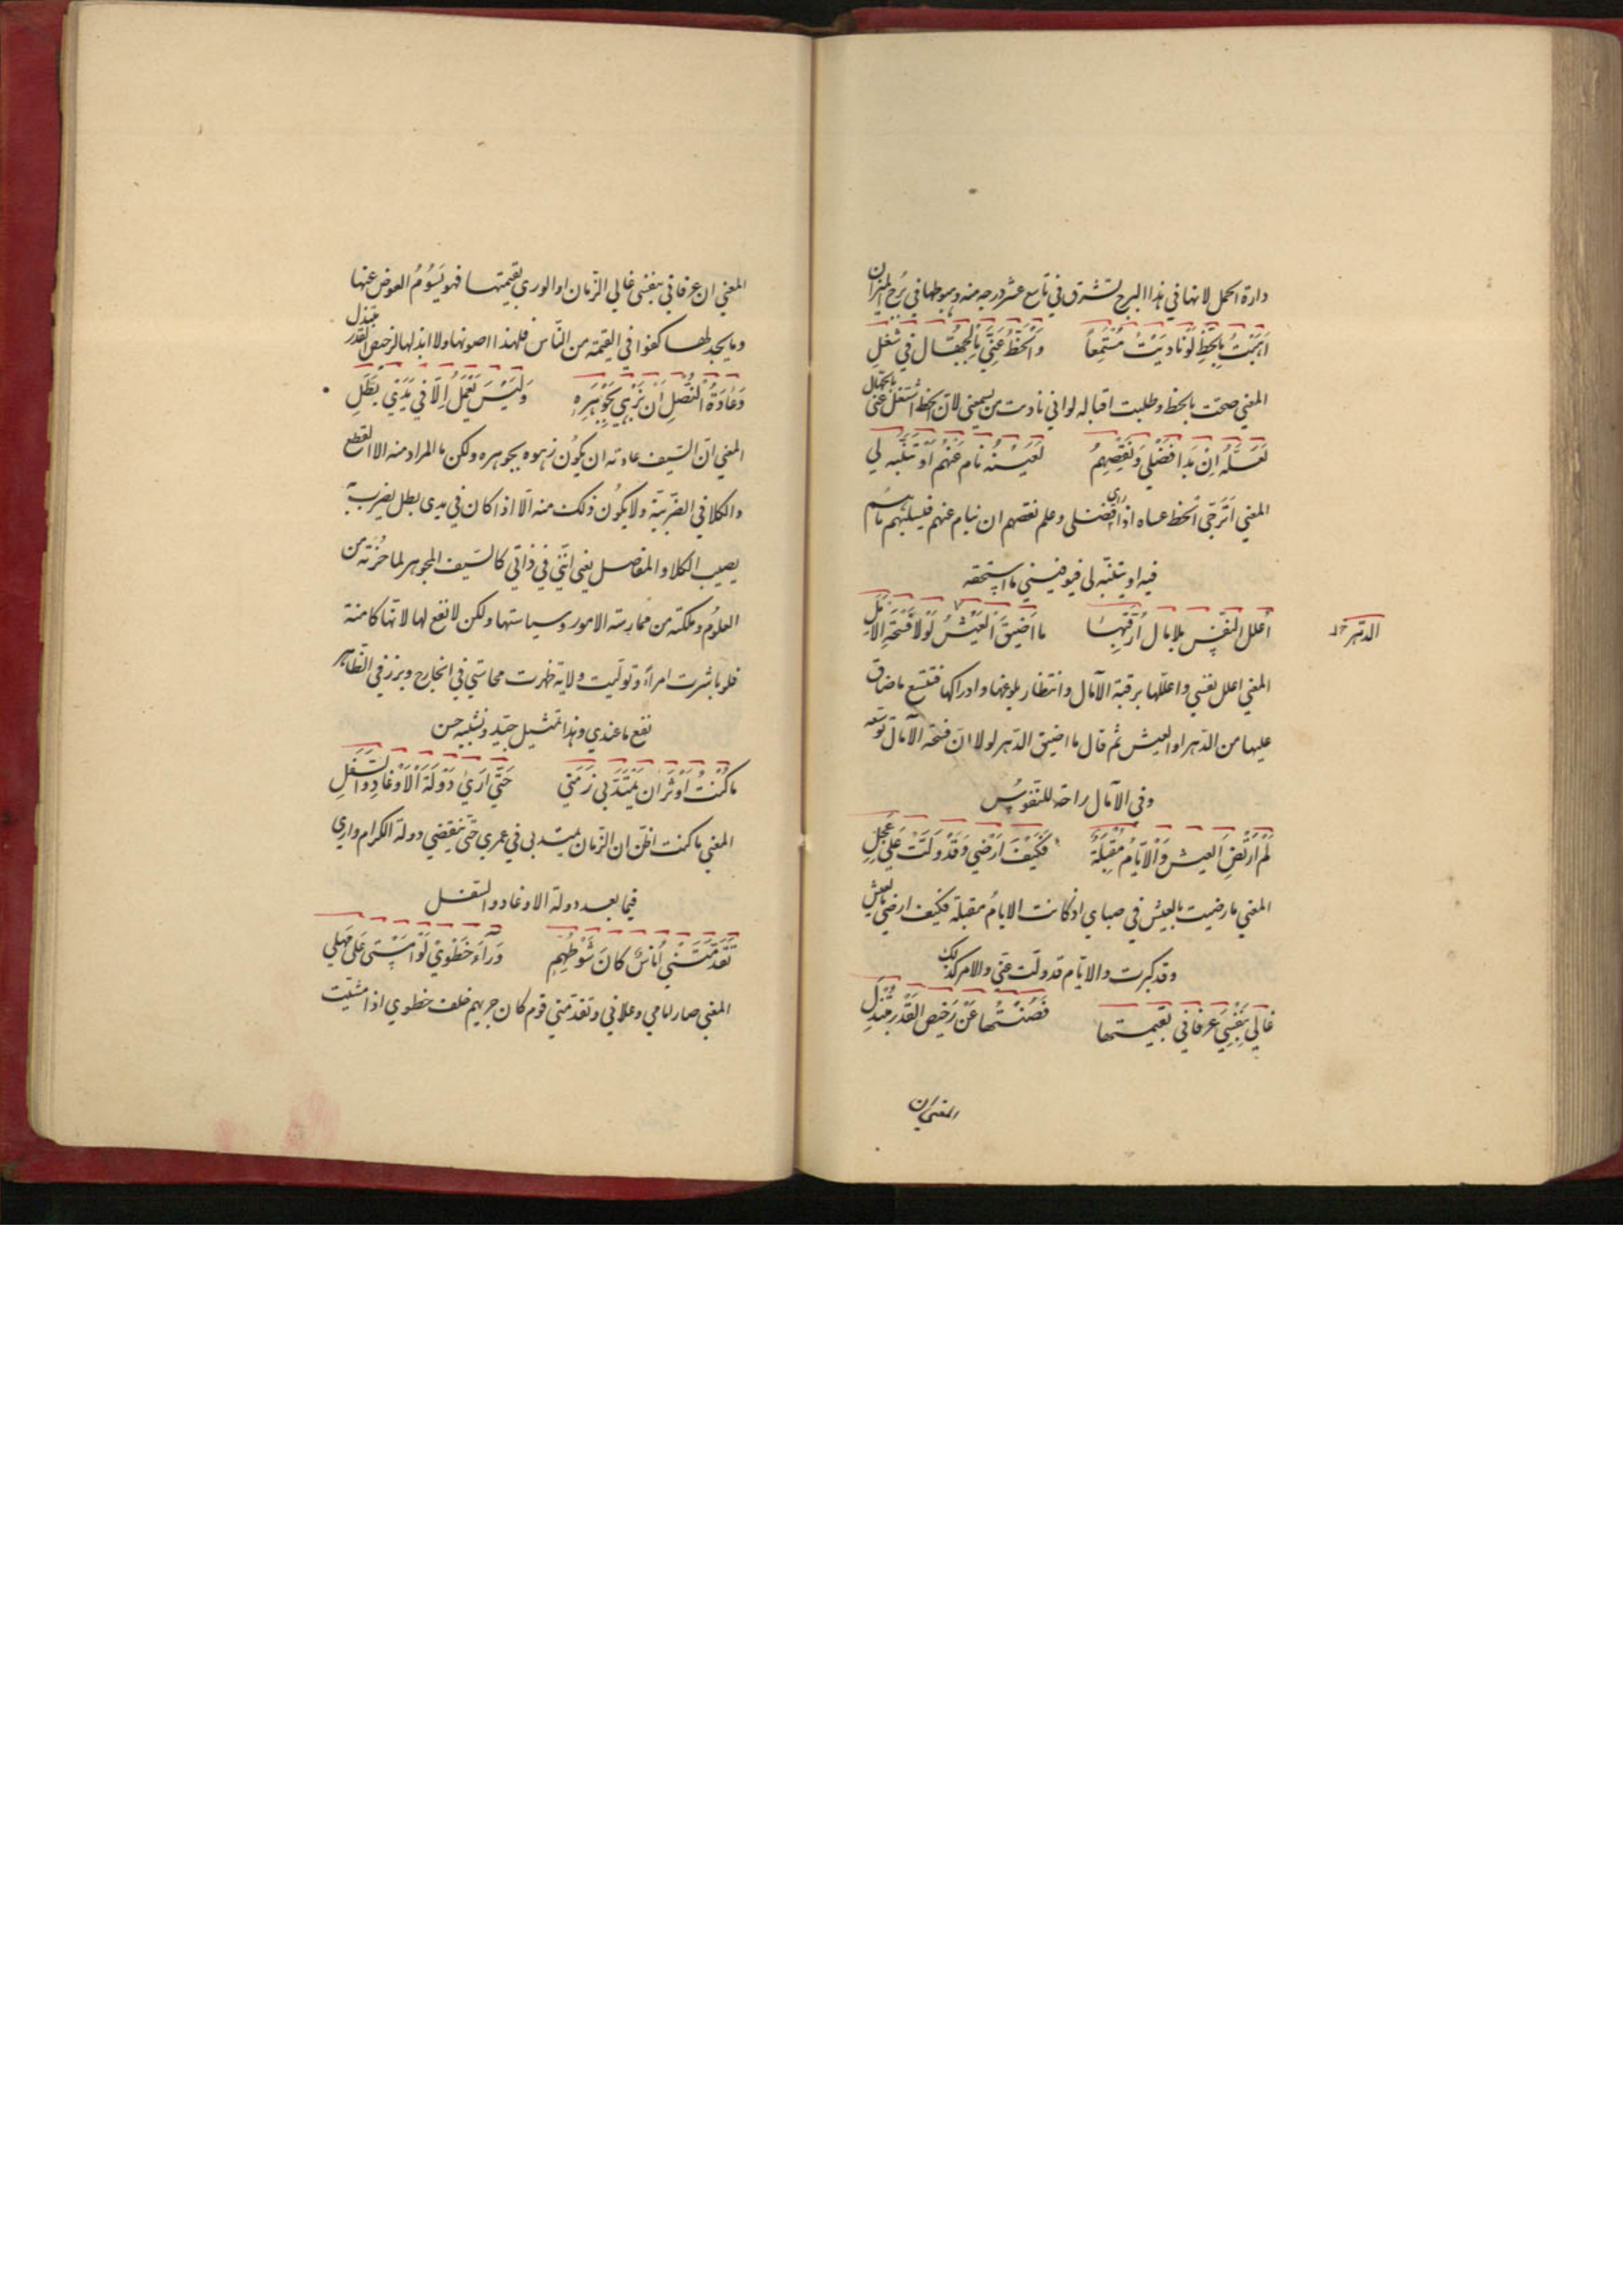 دارة الحمل لانها في هذا البرج تشرق في تاسع عشر درجه منه وهبوطها في برج الميزان
اَهَبْتُ بِالحَظِّ لَوْ نَادَيْتُ مُسْتَمِعاً وَالْحَظُّ عَنِّي بِالْجُهَّالِ فِي شُغُلِ
المعني صحت بالحظ وطلبت اقباله لو اني ناديت من يسمعني لان الحظ اشتغل عني بالجهال
لَعَلَّهُ اِنْ بَدَا فَضْلِي وَنَقْصُهُمُ لِعَيْنِهِ نَامَ عَنْهُمْ اَوْ تَنَبَّهَ لِي
المعني اَتَرَجّى الحظ عساه اذا رأي فضلي وعلم نقصهم ان ينام عنهم فيسلبهم ما هُم
فيه او يتنبّه لي فيوفيني ما استحقه
اُعلّل النفس بالامال اَرْقُبُهَا ما اَضْيَقَ الْعَيْشُ لَوْلَا فُسْحَةُ الْاَمَلِ
الدّهر خ
المعني اعلل نفسي واعلّلها برقبة الآمال وانتظار بلوغها وادراكها فتتسع ما ضاق
عليها من الدّهر او العيش ثم قال ما اضيق الدّهر لولا انّ فسحة الآمال توسعه
وفي الآمال راحة للنّفوس
لَمْ اَرْتَضِ الْعَيْشَ وَالْاَيّامُ مُقْبِلَةٌ فَكَيْفَ اَرْضِي وَقَدْ وَلَّتْ عَلَي عَجَلِ
المعني ما رضيت بالعيش في صباي اذ كانت الايامُ مقبلة فكيف ارضي بالعيش
وقد كبرت والايّام قد ولّت عنّي والامر كذلك
غَالِي بِنَفْسِيَ عِرْفَانِي بِقِيمَتِهَا فَصُنْتُهَا عَنْ رَخِيصِ الْقَدْرِ مُبْتَذَلِ
المعني ان
المعني ان عرفاني بنفسي غالي الزمان او الوري بقيمتها فهو يَسُوُمُ العوض عنها
وما يجد لها كفوا في القيمة من النّاس فلهذا اصونها ولا ابذلها لرخيص القدر مبتذل
وَعَادَةُ النَّصْلِ اَنْ يُزْهَي بِجَوْهَرِهِ وَلَيْسَ يَعْمَلُ اِلَّا فِي يَدَيْ بَطَلِ
المعني انّ السّيف عادته ان يكون زهوه بجوهره ولكن ما المراد منه الا القطع
والنكلا في الضّريبة ولا يكون ذلك منه الّا اذا كان في يدي بطل يضرب به
يصيب الكلا والمفاصل يعني انّني في ذاتي كالسّيف المجوهر لما حُزته من
العلوُم وملكته من ممارسة الامور وسياستها ولكن لا نفع لها لانّها كامنة
فلو باشرت امراً وتولّيت ولاية ظهرت محاسني في الخارج وبرز في الظّاهر
نفع ما عندي وهذا تمثيل جيّد وتشبيه حسن
ما كُنْتُ اُوثِرُ اَنْ يَمْتَدَّ بِي زَمَنِي حَتَّي اَرَي دَوْلَةَ الْاَوْغَادِ وَالسَّفَلِ
المعني ما كنت اظنّ ان الزّمان يمتد بي في عمري حتّي تنقضي دولة الكرام واري
فيما بعد دولة الاوغاد والسفل
تَقَدَّمَتْنِي اُنَاسٌ كَانَ شَوْطُهُمِ وَرَآءَ خَطْوِيَ لَوْ اَمْشِي عَلَي مَهَلِي
المعني صار امامي وعلاني وتقدّمني قوم كان جريهم خلف خطوي اذا مشيت